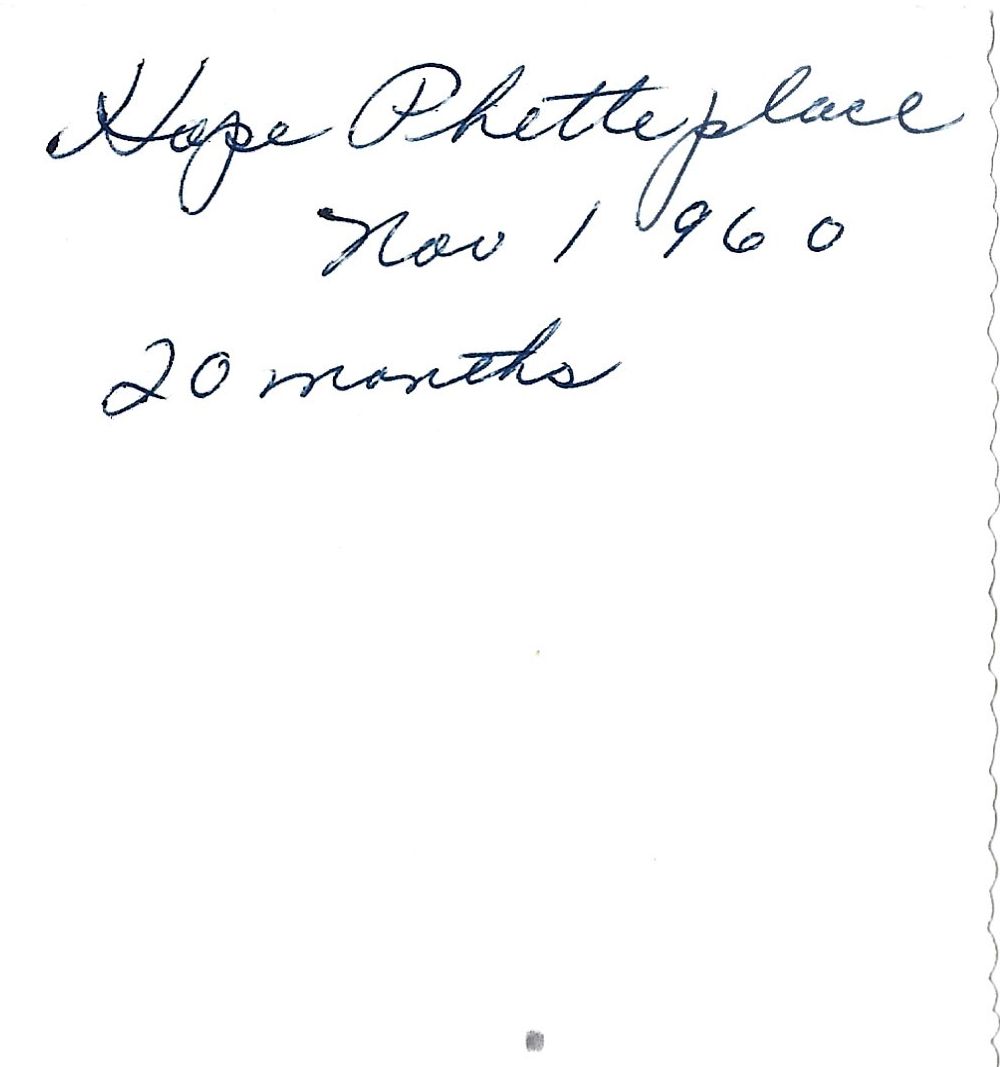 Hope Phetteplace
Nov 1960
20 months